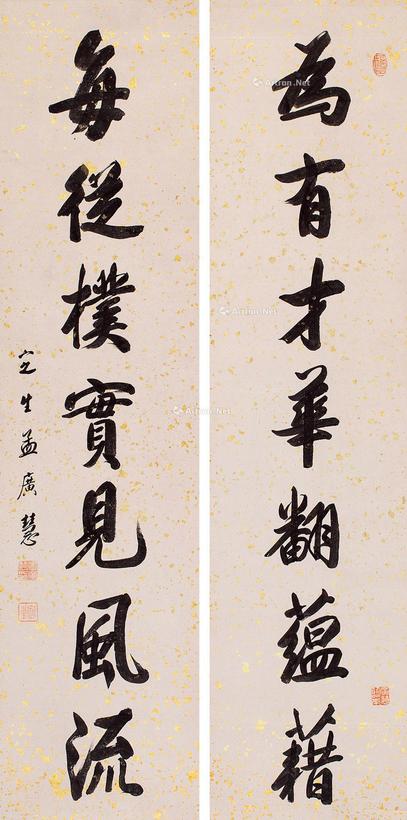 為有才華翻蘊藉
每從樸實見風流
定生孟廣慧
Artron.Net
Artron.Net
Artron.Net
Artron.Net